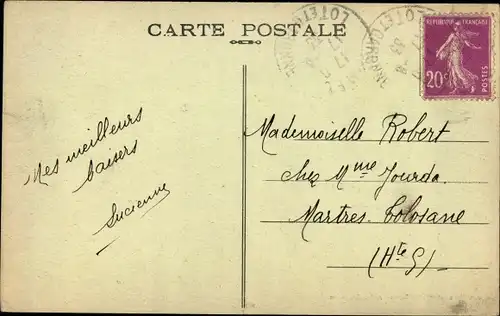 CARTE POSTALE
LOT ET GARONNE
REPUBLIQUE FRANÇAISE
20c
POSTES
Mes meilleurs
baisers
Lucienne
Mademoiselle Robert
chez Mme Jourda
Martres. Tolosane
(Hte G)